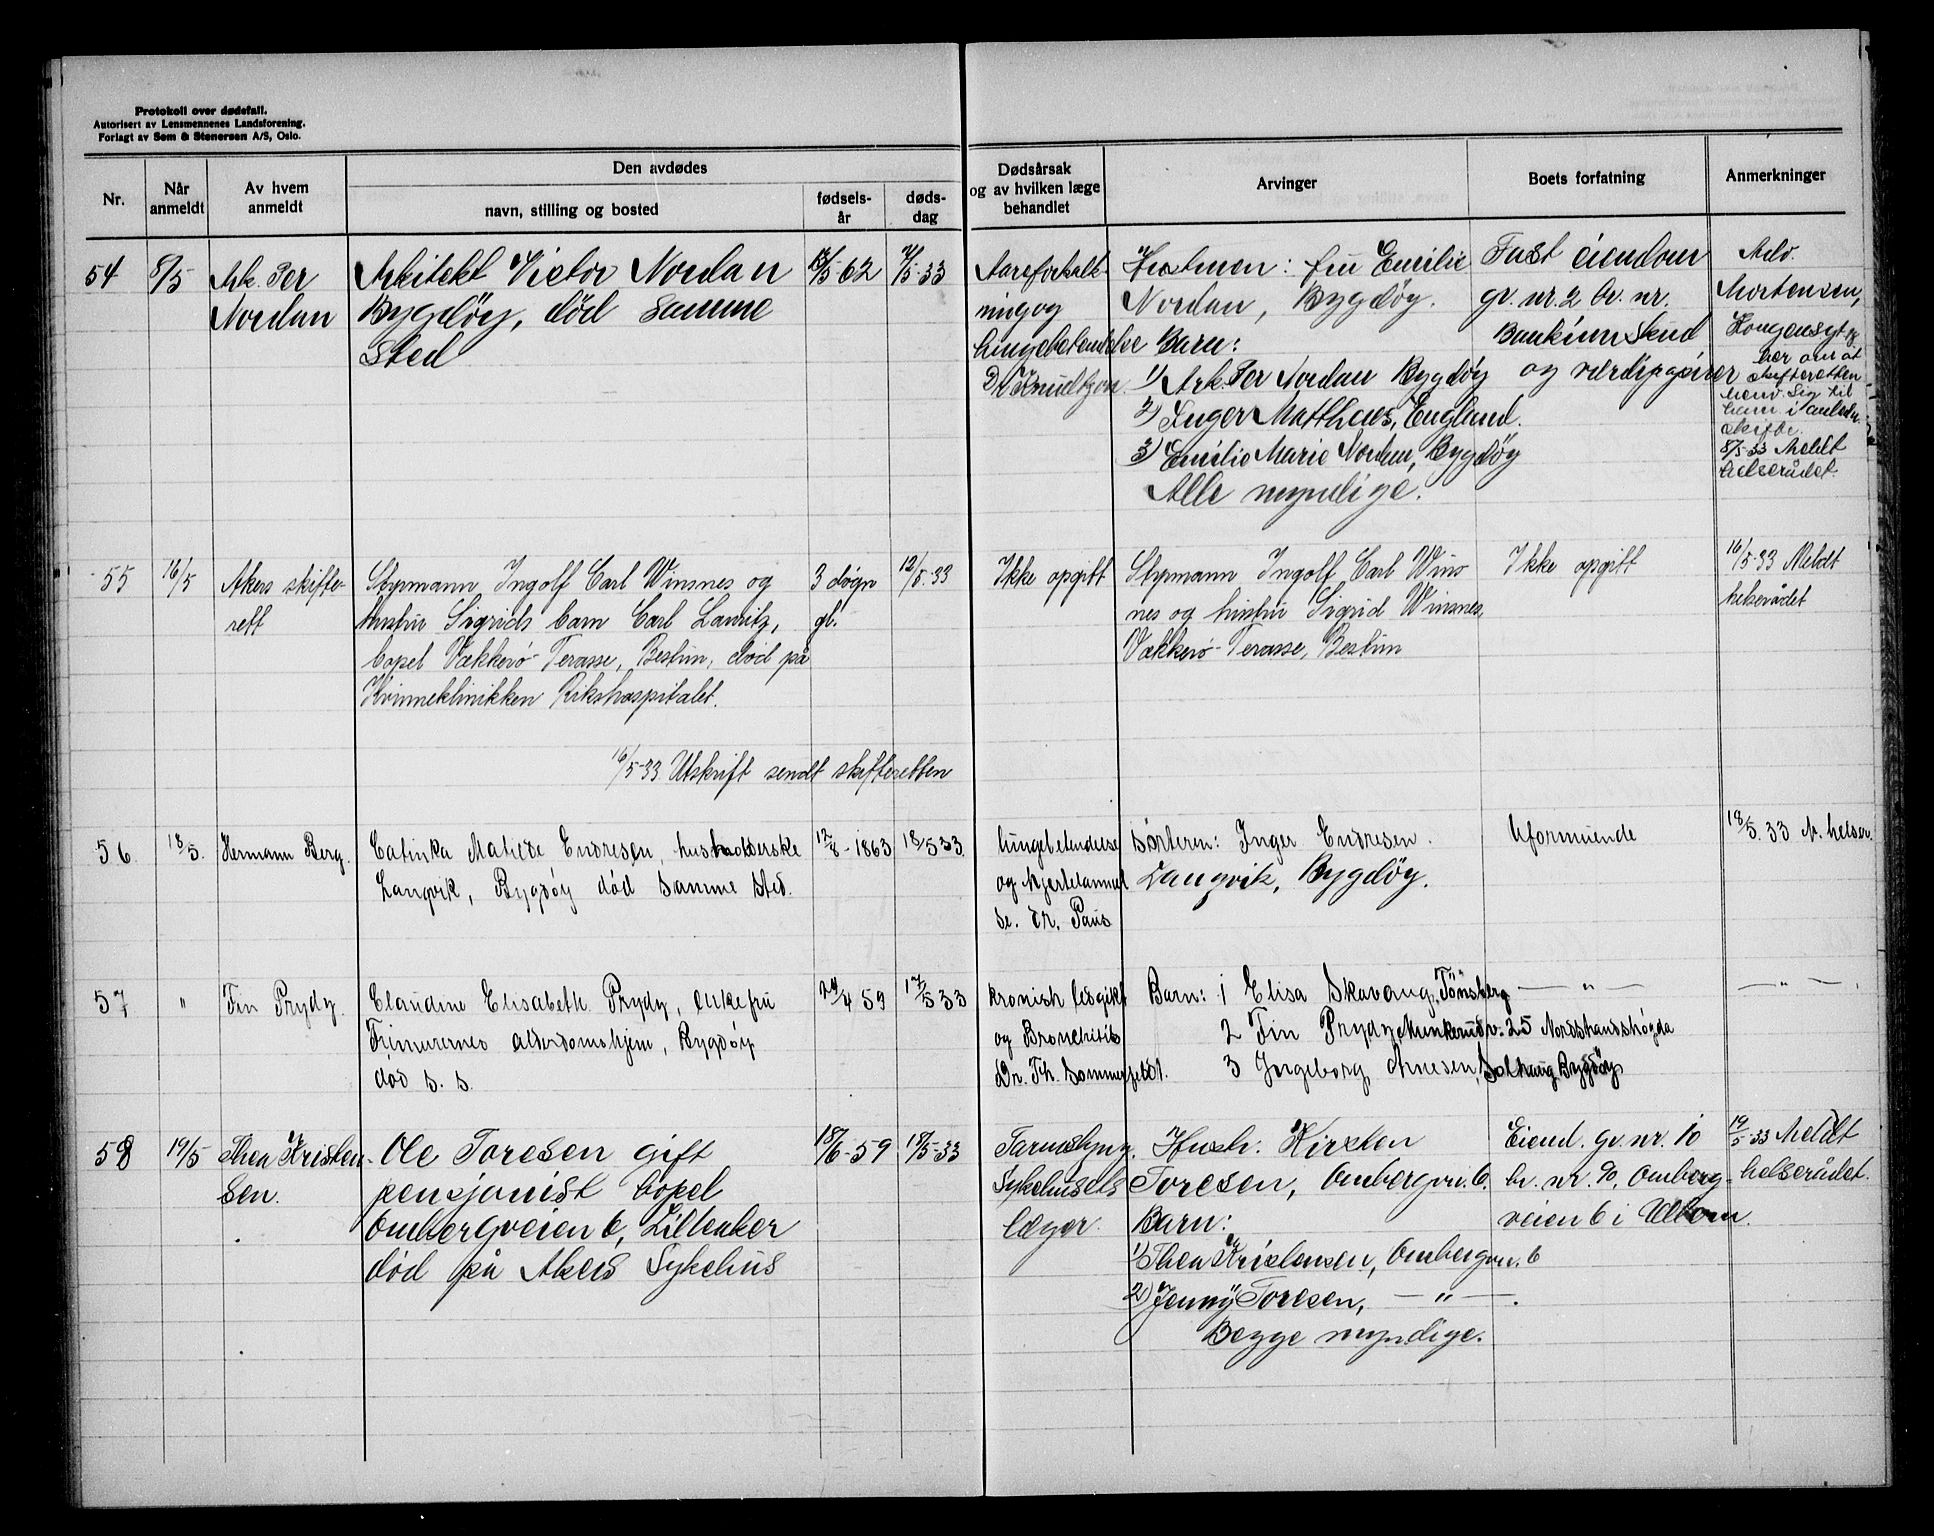 Protokoll over dødsfall.
Autorisert av Lensmennenes Landsforening.
Forlagt av Sem & Stenersen A/S, Oslo.
Nr.
Når anmeldt
Av hvem anmeldt
Den avdødes
navn, stilling og bosted
fødselsår
dødsdag
Dødsårsak og av hvilken læge behandlet
Arvinger
Boets forfatning
Anmerkninger
54
8/5
Ark. Per
Nordan
Arkitekt Victor Nordan
Bygdöy, död samme
sted
/5-62
/5-33
Aareforkalk-
ning og
lungebetendelse
Dr Knudtzon
Hustruen: fru Emilie
Nordan, Bygdöy.
Barn:
1) Ark. Per Nordan Bygdöy
2) Inger Matthews, England.
3) Emilie Marie Nordan, Bygdöy
Alle myndige.
Fast eiendom
gr. nr. 2 br. nr.
Bankinnskud
og værdipapirer
Adv.
Mortensen,
Kongensgt.
ber om at
skifteretten
henv. sig til
ham i anledn.
skifte.
8/5-33 Meldt
helserådet.
55
16/5
Akers skifte-
rett
Styrmann Ingolf Carl Winsnes og
hustru Sigrids barn Carl Lauritz,
bopel Vækkerö-Terasse, Bestun, död på
Kvinneklinikken Rikshospitalet.
3 døgn
gl.
12/5-33
Ikke opgitt
Styrmann Ingolf Carl Wins
nes og hustru Sigrid Winsnes,
Vækkerö-Terasse, Bestun
Ikke opgitt
16/5-33 Meldt
helserådet
16/5-33. Utskrift sendt skifteretten
56
18/5.
Hermann Berg.
Catinka Matilde Endresen, husholderske
Langvik, Bygdöy död samme sted.
12/8-1863
18/5 33.
lungebetendelse
og hjertelammel
se. dr. Paus
Sösteren: Inger Endresen.
Langvik, Bygdöy.
Uformuende
18/5. 33 M. helser.
57
"
Fin Prydz.
Claudine Elisabeth Prydz, enkefru
Frimurernes alderdomshjem, Bygdöy
död s. s.
29/4 59
17/5 33
kronisk ledgikt
og Bronchitis
Dr. Th. Sommerfeldt.
Barn: 1 Elisa Skavang, Tönsberg
2 Fin Prydz Munkerudv. 25 Nordstrandshögda
3 Ingeborg Arnesen, Solhaug Bygdöy
— " —
— " —
58
19/5
Thea Kristen-
sen.
Ole Toresen gift
pensjonist bopel
Ombergveien 6, Lilleaker
död på Akers Sykehus
15/6-59
18/5-33
Tarmslyng.
Sykehusets
læger.
Hustr: Kirsten
Toresen, Ombergvn. 6.
Barn:
1) Thea Kristensen, Ombergvn. 6
2) Jenny Toresen, — " —.
Begge myndige.
Eiend. gr. nr. 10
br. nr. 90, Omberg-
veien 6 i Ullern.
19/5-33 Meldt
helserådet.